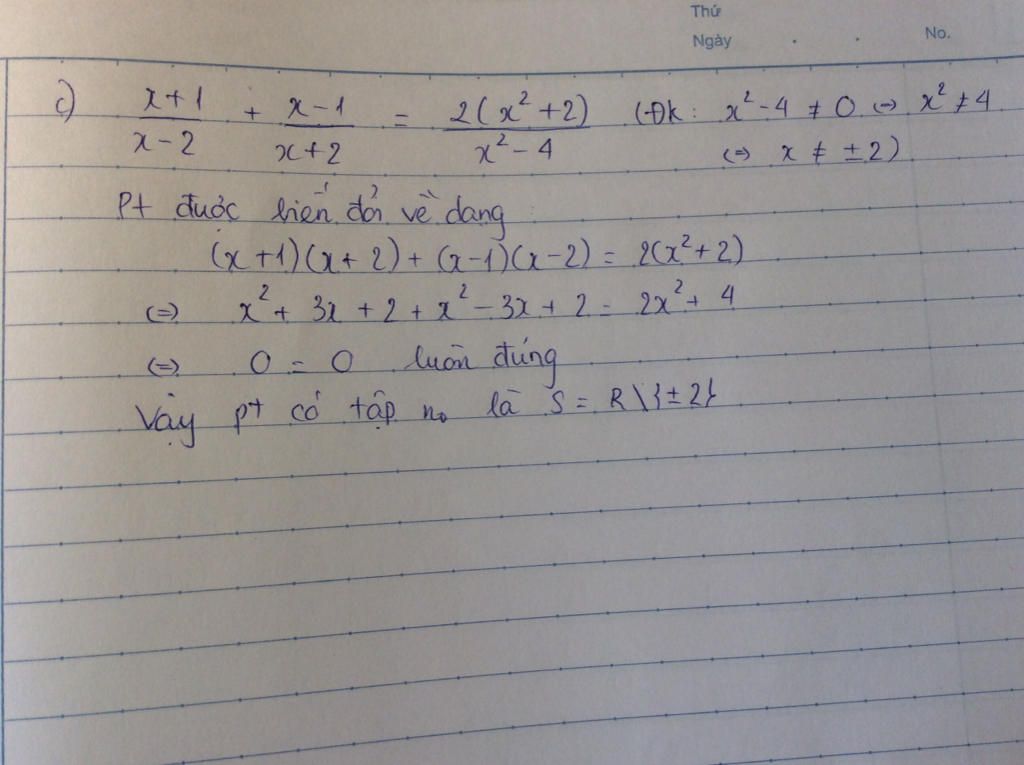 Thứ
Ngày . . No.
c) (x+1)/(x-2) + (x-1)/(x+2) = 2(x²+2)/(x²-4) (Đk: x²-4 ≠ 0 ⇔ x² ≠ 4
⇔ x ≠ ±2)
Pt được biến đổi về dạng
(x+1)(x+2)+(x-1)(x-2) = 2(x²+2)
⇔ x² + 3x + 2 + x² - 3x + 2 = 2x² + 4
⇔ 0 = 0 luôn đúng
Vậy pt có tập no là S = R\{±2}